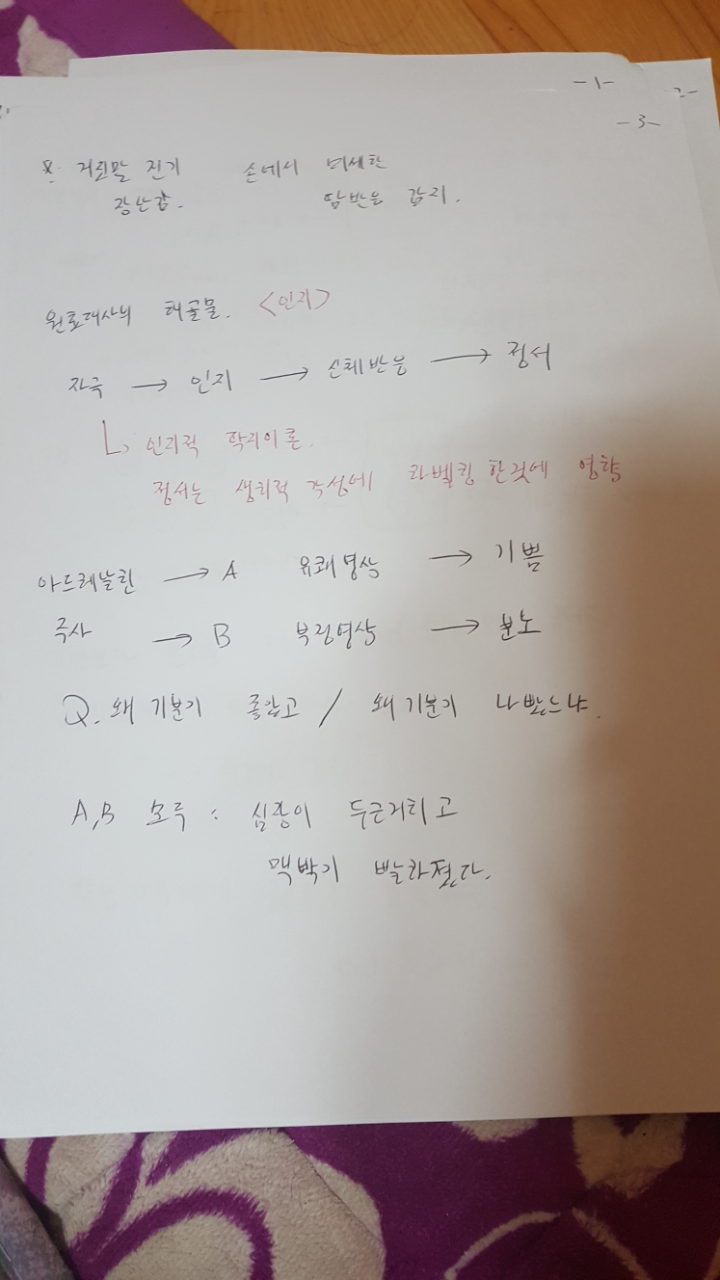 -1-
2-
-3-
※ 거짓말 전기 손에서 미세한
장난감. 땀반응 감지.
원효대사의 해골물. <인지>
자극 → 인지 → 신체반응 → 정서
인지적 학파이론.
정서는 생리적 각성에 라벨링 한것에 영향
아드레날린 → A 유쾌영상 → 기쁨
주사 → B 부정영상 → 분노
Q. 왜 기분이 좋았고 / 왜 기분이 나빴느냐.
A,B 모두 : 심장이 두근거리고
맥박이 빨라졌다.